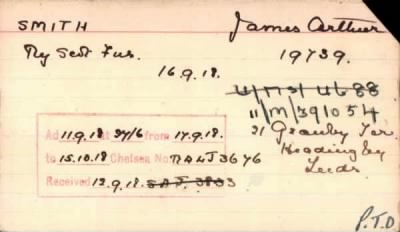 SMITH James Arthur
Ry Scot Fus. 19739.
16.9.18.
11/M/391054
21 Granby Ter.
Headingley
Leeds.
Ad 11.9.18 27/6 from 17.9.18.
to 15.10.18 Chelsea No
Received 12.9.18.
P.T.O